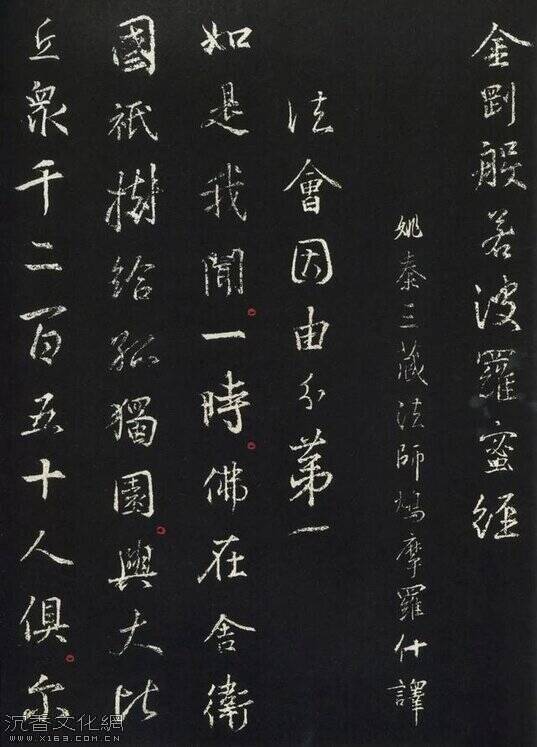 金剛般若波羅蜜經
姚秦三藏法師鳩摩羅什譯
法會因由分第一
如是我聞。一時。佛在舍衛
國祇樹給孤獨園。與大比
丘衆千二百五十人俱。尔
沉香文化網
www.x169.com.cn